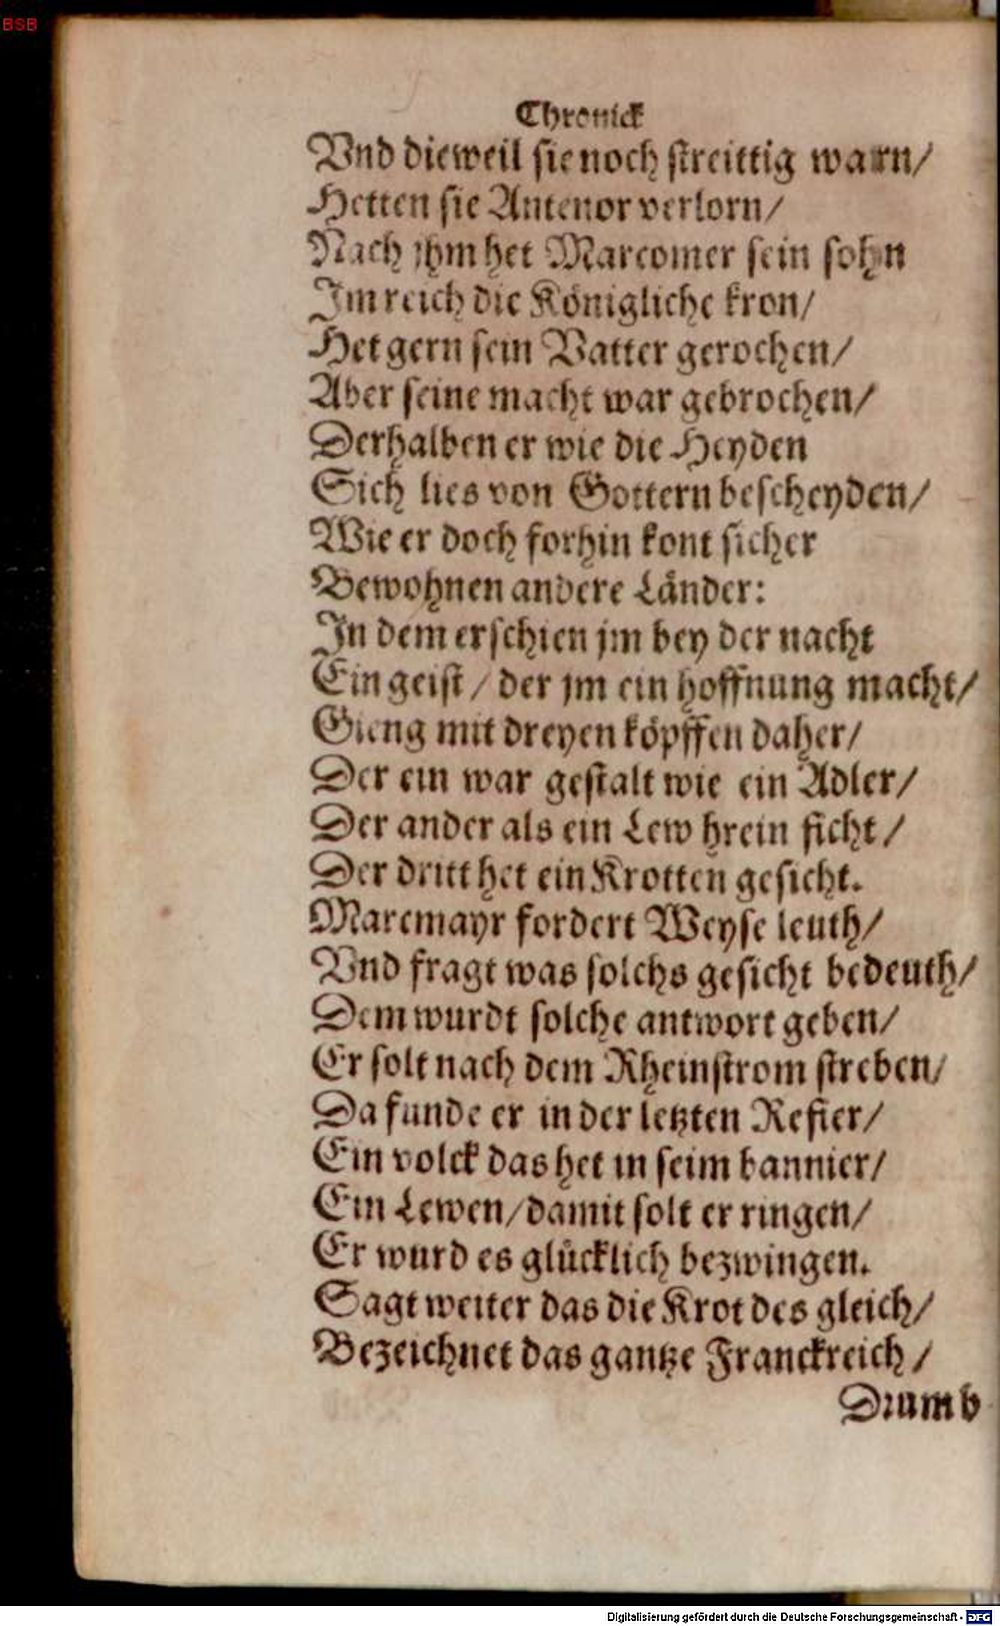 BSB
Chronick
Vnd dieweil sie noch streittig warn/
Hetten sie Antenor verlorn/
Nach jhm het Marcomer sein sohn
Im reich die Königliche kron/
Het gern sein Vatter gerochen/
Aber seine macht war gebrochen/
Derhalben er wie die Heyden
Sich lies von Gottern bescheyden/
Wie er doch forhin kont sicher
Bewohnen andere Länder:
In dem erschien jm bey der nacht
Ein geist / der jm ein hoffnung macht/
Gieng mit dreyen köpffen daher/
Der ein war gestalt wie ein Adler/
Der ander als ein Lew hrein sicht/
Der dritt het ein Krotten gesicht.
Marcmayr fordert Weyse leuth/
Vnd fragt was solchs gesicht bedeuth/
Dem wurdt solche antwort geben/
Er solt nach dem Rheinstrom streben/
Da funde er in der letzten Refier/
Ein volck das het in seim bannier/
Ein Lewen/damit solt er ringen/
Er wurd es glücklich bezwingen.
Sagt weiter das die Krot des gleich/
Bezeichnet das gantze Franckreich/
Drumb
Digitalisierung gefördert durch die Deutsche Forschungsgemeinschaft - DFG